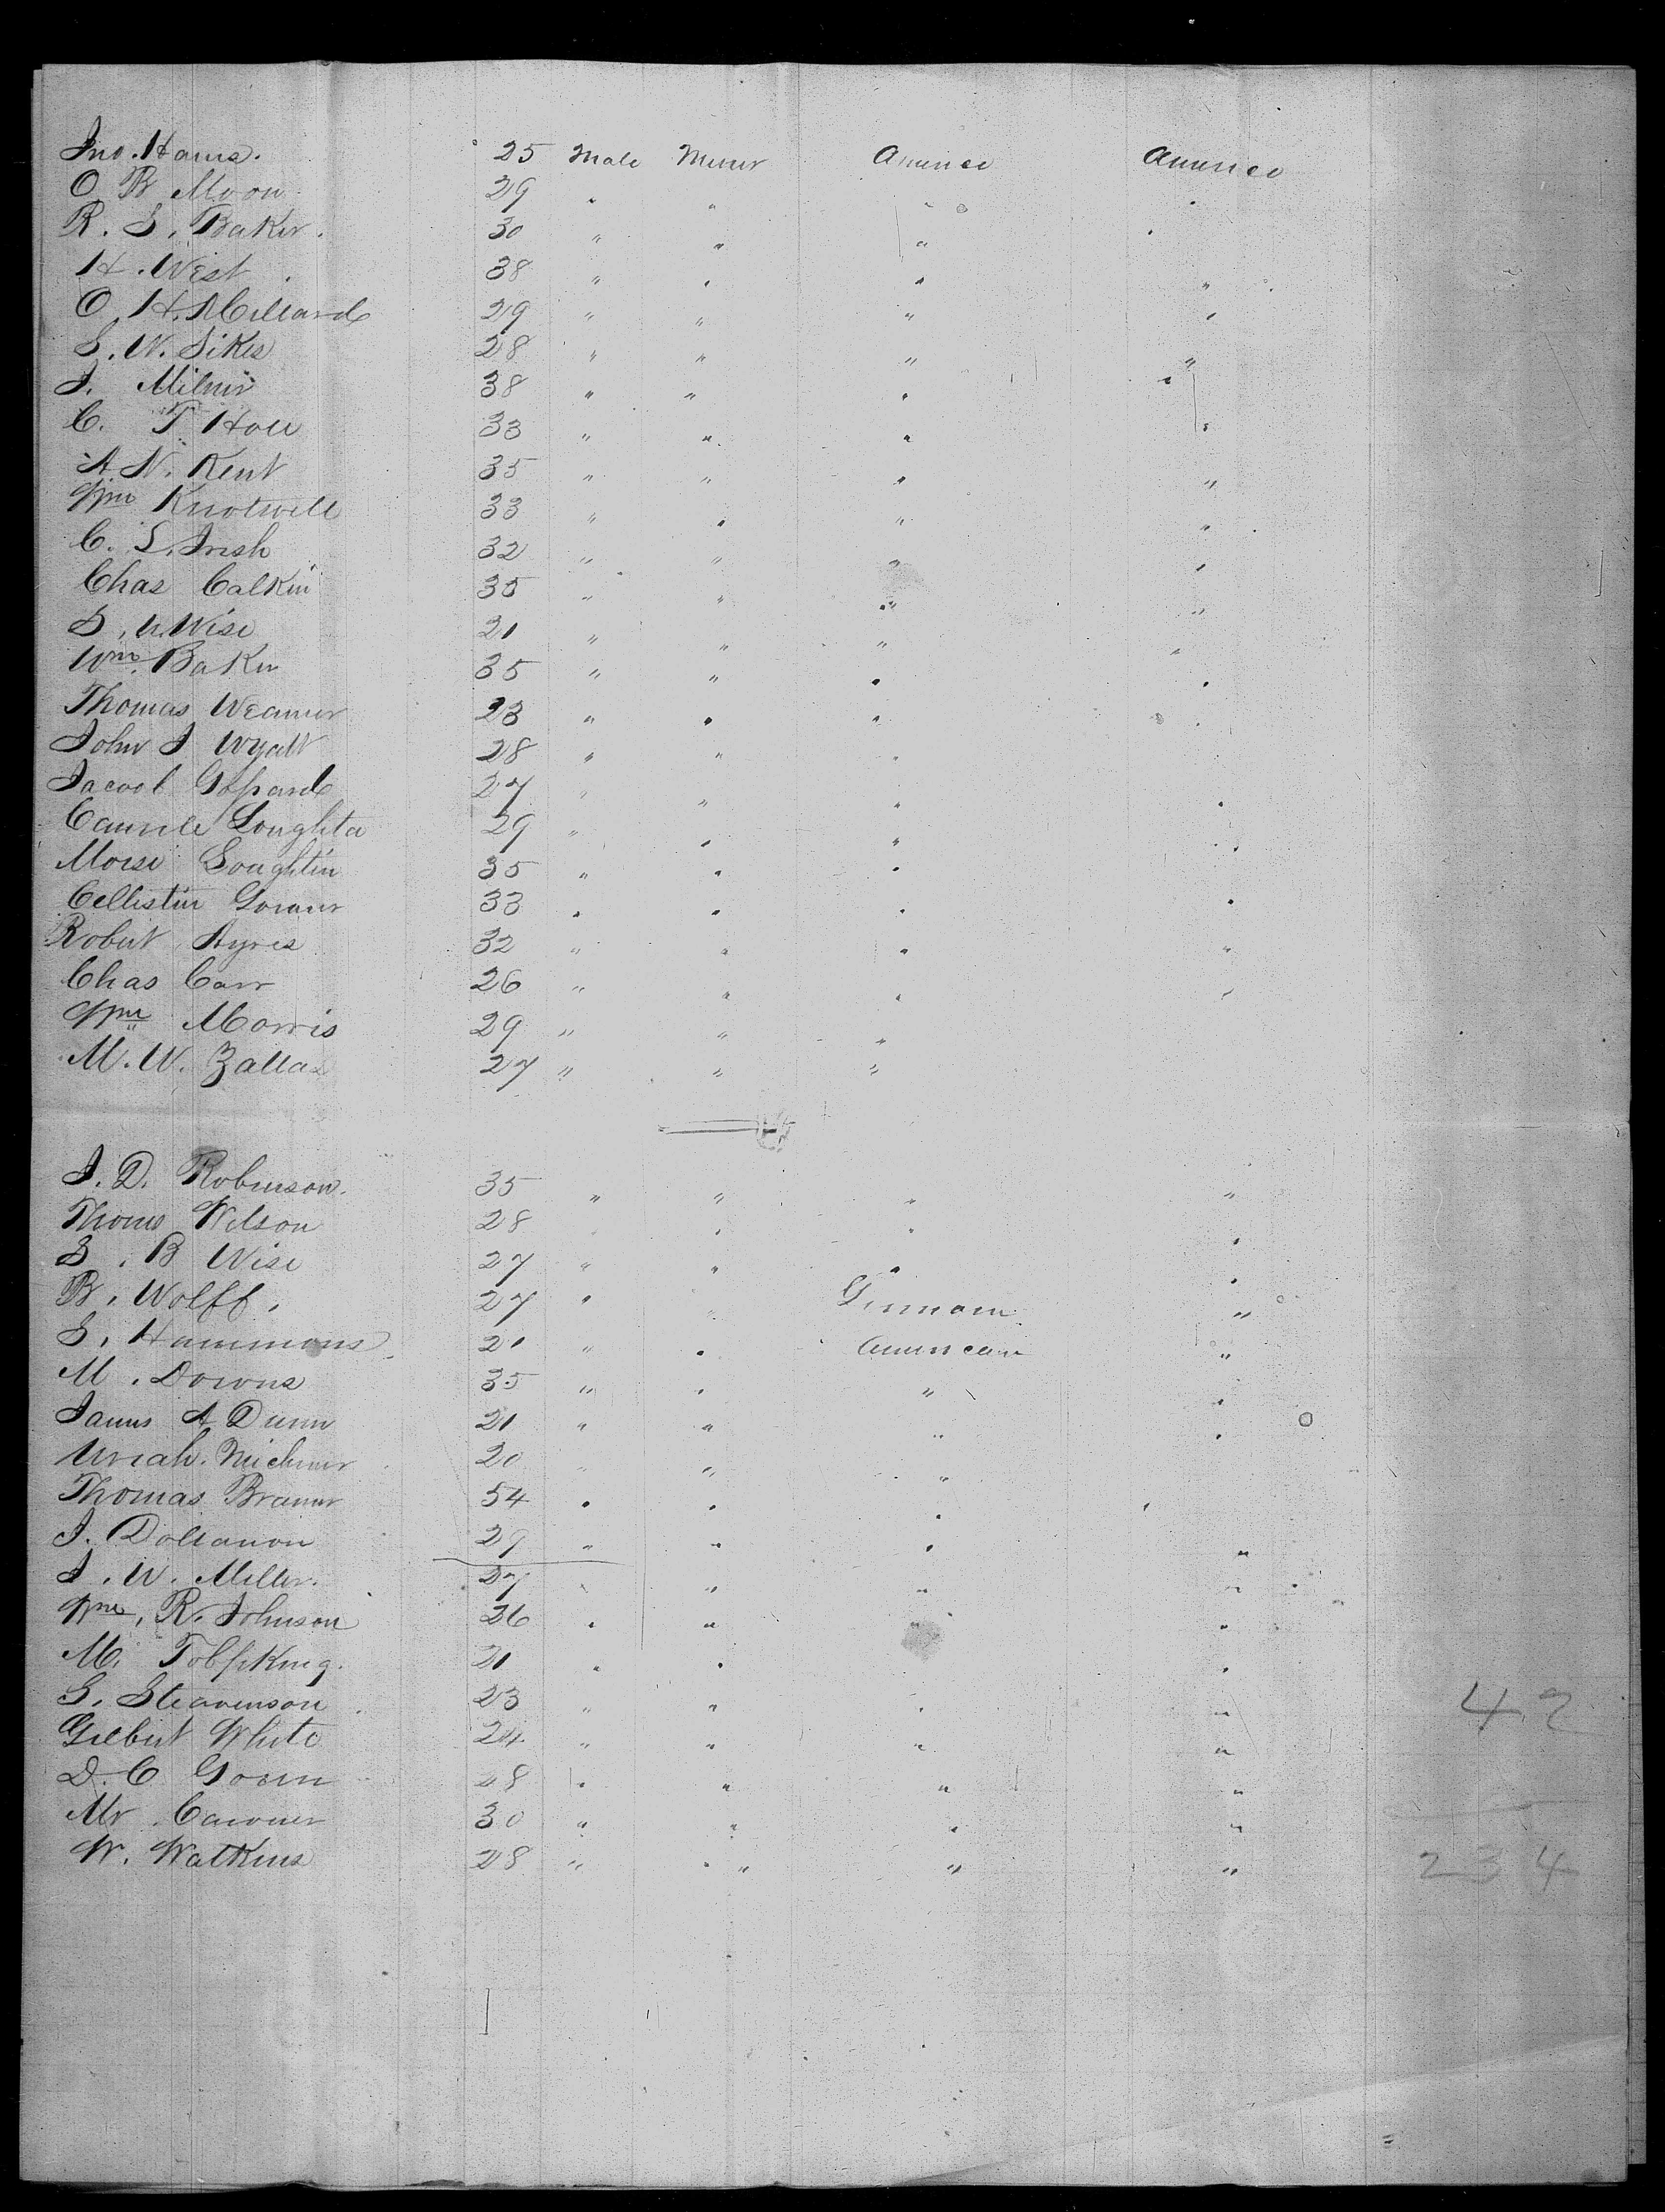 Jno. Harris. 25 Male Miner America America
O B Moon 29 " " " "
R. S. Baker. 30 " " " "
H. West. 38 " " " "
O. H. Millard 29 " " " "
S. W. Sikes 28 " " " "
J. Milner 38 " " " "
C. T Hall 33 " " " "
A. N. Kent 35 " " " "
Wm Knotwell 33 " " " "
C. L. Irish 32 " " " "
Chas Calkin 35 " " " "
S. W Wise 21 " " " "
Wm. Baker 35 " " " "
Thomas Weamer 23 " " " "
John J Wyatt 28 " " "
Jacool 27 " " " "
Loughta 29 " " " "
Morse Loughtin 35 " " "
Cellistin 33 " " " "
Robert Ayres 32 " " " "
Chas Carr 26 " " " "
Wm Morris 29 " " "
M. W. Zallas 27 " " "
J. D. Robinson. 35 " " " "
Thoms Wilson 28 " " " "
S. B Wise 27 " " " "
B. Wolff. 27 " " German "
S. Hammons 21 " " American "
M. Downs 35 " " " "
James A Dunn 21 " " " "
Uriah. Michner 20 " " "
Thomas Braner 54 " " " "
J. 29 " " " "
J. W. Miller. 27 " " " "
Wm. R. Johnson 26 " " " "
M. 21 " " "
S. Steavenson 23 " " " " 42
Gilbert White 24 " " " "
D. C 28 " " " "
Mr. 30 " " " "
W. Watkins 28 " " " " 234